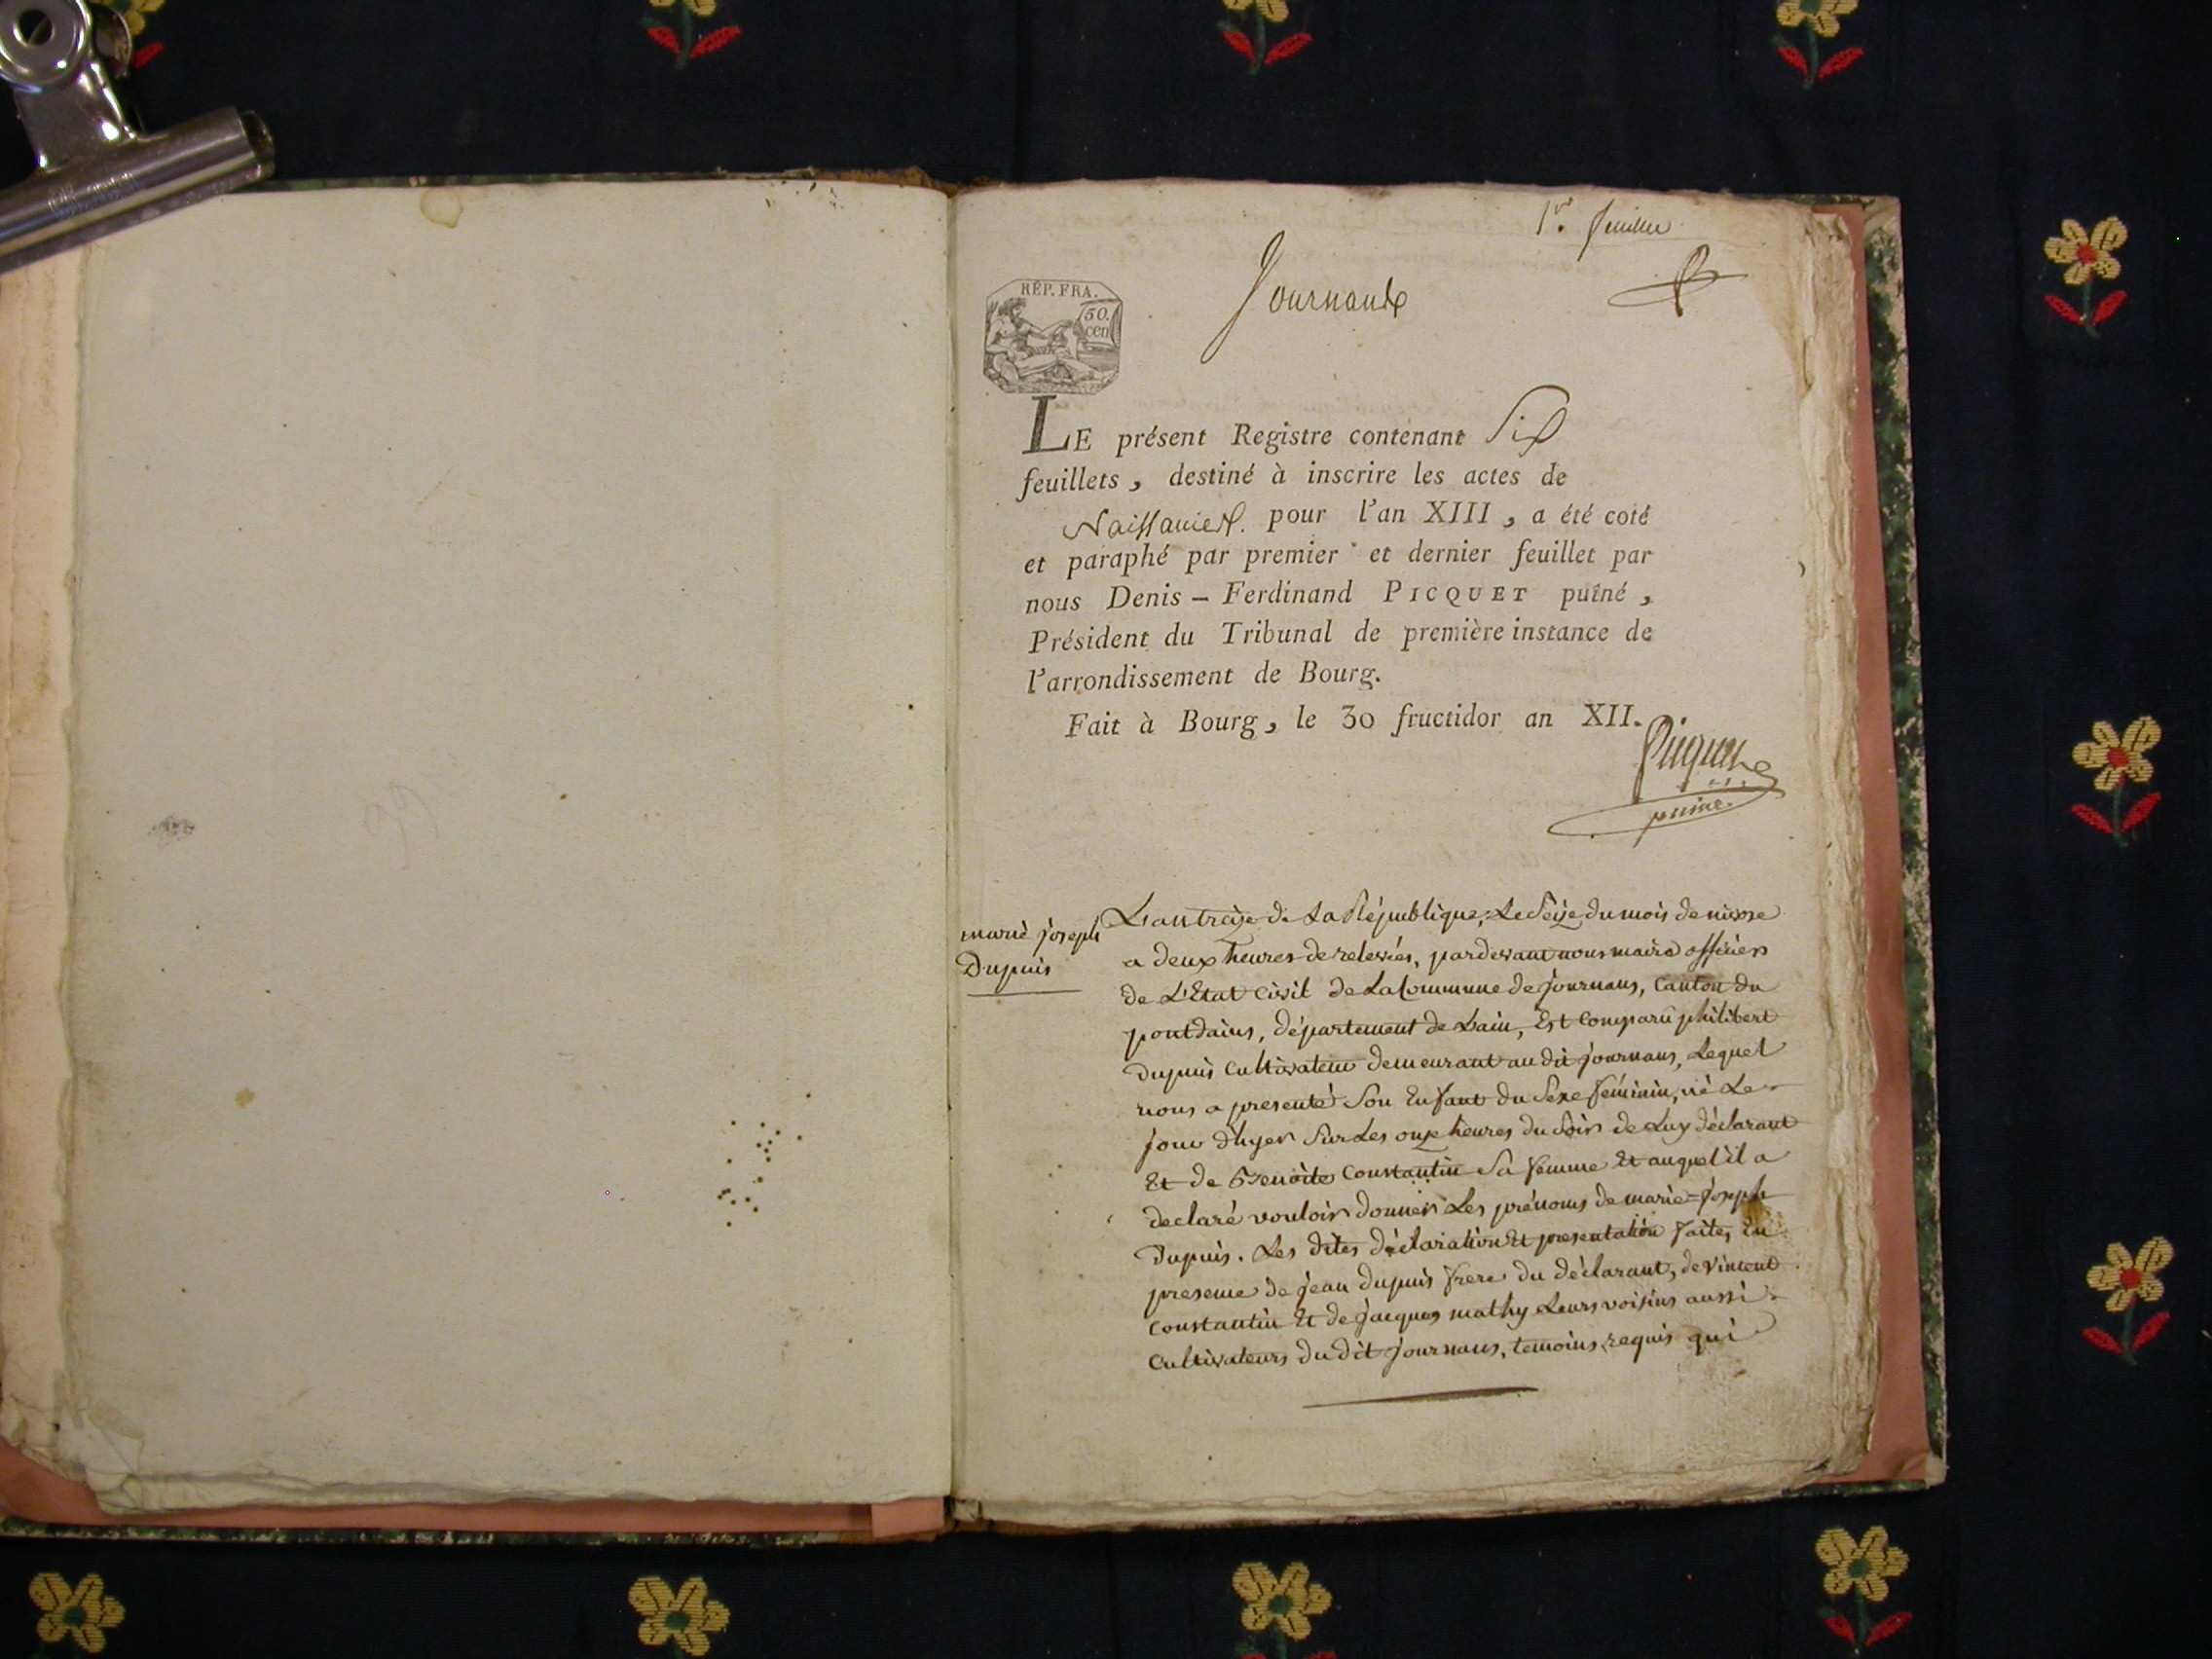 1er. feuillet
Journans
RÉP. FRA.
50.
cen
LE présent Registre contenant Six
feuillets, destiné à inscrire les actes de
Naissances. pour l'an XIII, a été coté
et paraphé par premier et dernier feuillet par
nous Denis - Ferdinand PICQUET puîné,
Président du Tribunal de première instance de
l'arrondissement de Bourg.
Fait à Bourg, le 30 fructidor an XII.
Picquet
puiné.
marie joseph
Dupuis
L'an treize de La République, Le Seize du mois de nivose
a deux heures de relevées, pardevant nous maire officier
de L'Etat Civil de La Commune de journans, Canton du
pontdains, département de Lain, Est Comparu philibert
Dupuis Cultivateur demeurant au dit journans, Lequel
nous a presenté Son Enfant du Sexe féminin, né Le
jour d'hyer Sur Les onze heures du Soir de Luy déclarant
Et de Benoite Constantin Sa femme Et auquel il a
declaré vouloir donner Les prénoms de marie=joseph
Dupuis. Les dites déclaration Et presentation faites En
presence de jean Dupuis frere du déclarant, de Vincent
Constantin Et de jacques mathy Leurs voisins aussi
Cultivateurs du dit journans, temoins requis qui